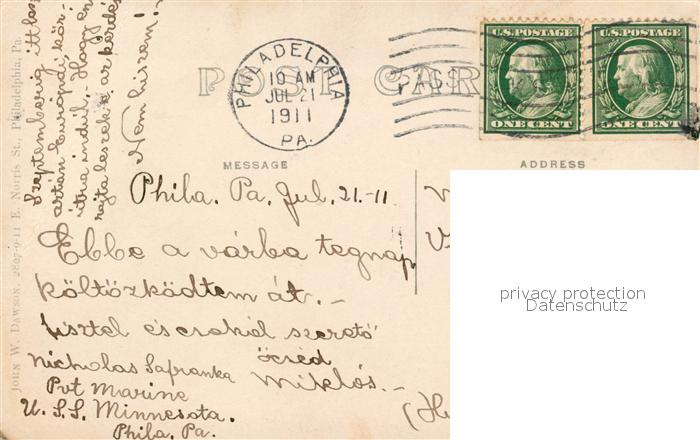 Szeptemberig itt lesz
aztán Európai kör-
útra indul. Hogy én
rajta leszek e az kérdés
Nem hiszem!
JOHN W. DAWSON, 2807-9-11 E. Norris St., Philadelphia, Pa.
POST CAR
PHILADELPHIA
10 AM
JUL 21
1911
PA.
U.S. POSTAGE
ONE CENT
U.S. POSTAGE
ONE CENT
MESSAGE
ADDRESS
Phila. Pa. Jul. 21.-11
Ebbe a várba tegnap
költözködtem át.-
tisztel és csakol szerető
öcséd
Miklós.-
Nicholas Safranka
Pvt Marine
U.S.S. Minnesota.
Phila. Pa.
privacy protection
Datenschutz